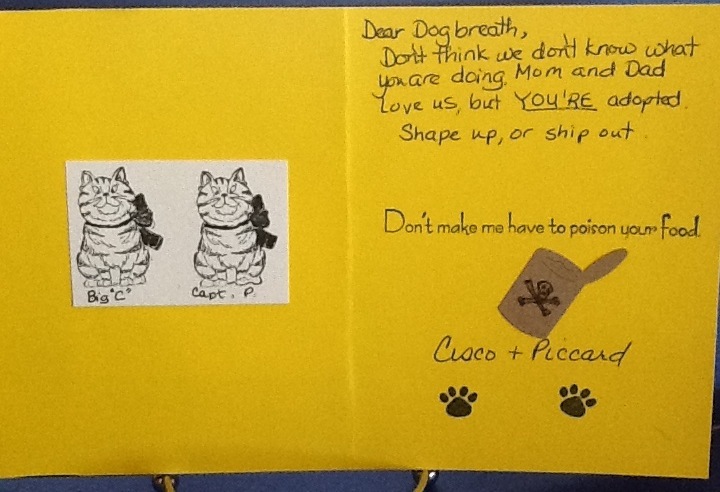 Big "C"
Capt. P.
Dear Dogbreath,
Don't think we don't know what
you are doing. Mom and Dad
Love us, but YOU'RE adopted.
Shape up, or ship out.
Don't make me have to poison your food.
Cisco + Piccard